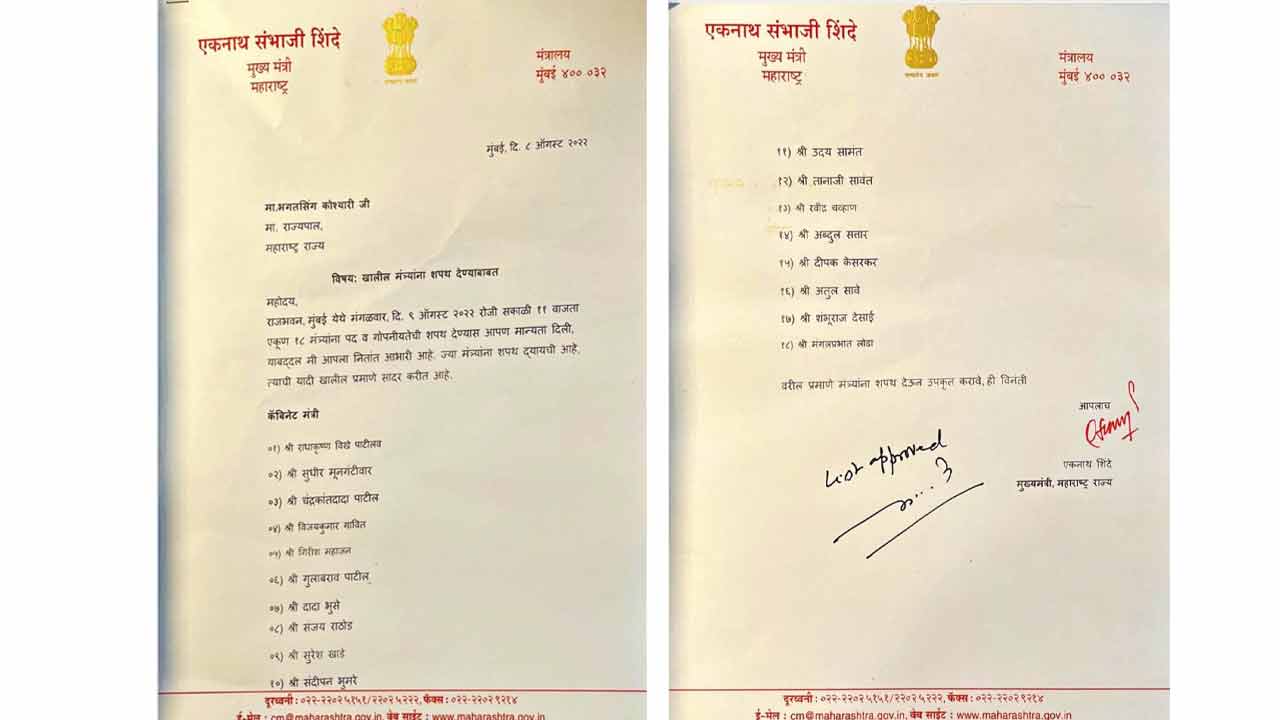 एकनाथ संभाजी शिंदे
मुख्य मंत्री
महाराष्ट्र
मंत्रालय
मुंबई ४०० ०३२
मुंबई, दि. ८ ऑगस्ट २०२२
मा.भगतसिंग कोश्यारी जी
मा. राज्यपाल,
महाराष्ट्र राज्य
विषय: खालील मंत्र्यांना शपथ देण्याबाबत
महोदय,
राजभवन, मुंबई येथे मंगळवार, दि. ९ ऑगस्ट २०२२ रोजी सकाळी ११ वाजता
एकूण १८ मंत्र्यांना पद व गोपनीयतेची शपथ देण्यास आपण मान्यता दिली,
याबद्दल मी आपला नितांत आभारी आहे. ज्या मंत्र्यांना शपथ द्यायची आहे,
त्याची यादी खालील प्रमाणे सादर करीत आहे.
कॅबिनेट मंत्री
०१) श्री राधाकृष्ण विखे पाटीलव
०२) श्री सुधीर मूनगंटीवार
०३) श्री चंद्रकांतदादा पाटील
०४) श्री विजयकुमार गावित
०५) श्री गिरीश महाजन
०६) श्री गुलाबराव पाटील
०७) श्री दादा भुसे
०८) श्री संजय राठोड
०९) श्री सुरेश खाडे
१०) श्री संदीपन भुमरे
दूरध्वनी : ०२२-२२०२५१५१/२२०२५२२२, फॅक्स : ०२२-२२०२९२१४
ई-मेल : cm@maharashtra.gov.in, वेब साईट : www.maharashtra.gov.in
एकनाथ संभाजी शिंदे
मुख्य मंत्री
महाराष्ट्र
मंत्रालय
मुंबई ४०० ०३२
११) श्री उदय सामंत
१२) श्री तानाजी सावंत
१३) श्री रवींद्र चव्हाण
१४) श्री अब्दुल सत्तार
१५) श्री दीपक केसरकर
१६) श्री अतुल सावे
१७) श्री शंभूराज देसाई
१८) श्री मंगलप्रभात लोढा
वरील प्रमाणे मंत्र्यांना शपथ देऊन उपकृत करावे, ही विनंती
आपलाच
एकनाथ शिंदे
मुख्यमंत्री, महाराष्ट्र राज्य
List approved
दूरध्वनी : ०२२-२२०२५१५१/२२०२५२२२, फॅक्स : ०२२-२२०२९२१४
ई-मेल : cm@maharashtra.gov.in, वेब साईट : www.maharashtra.gov.in